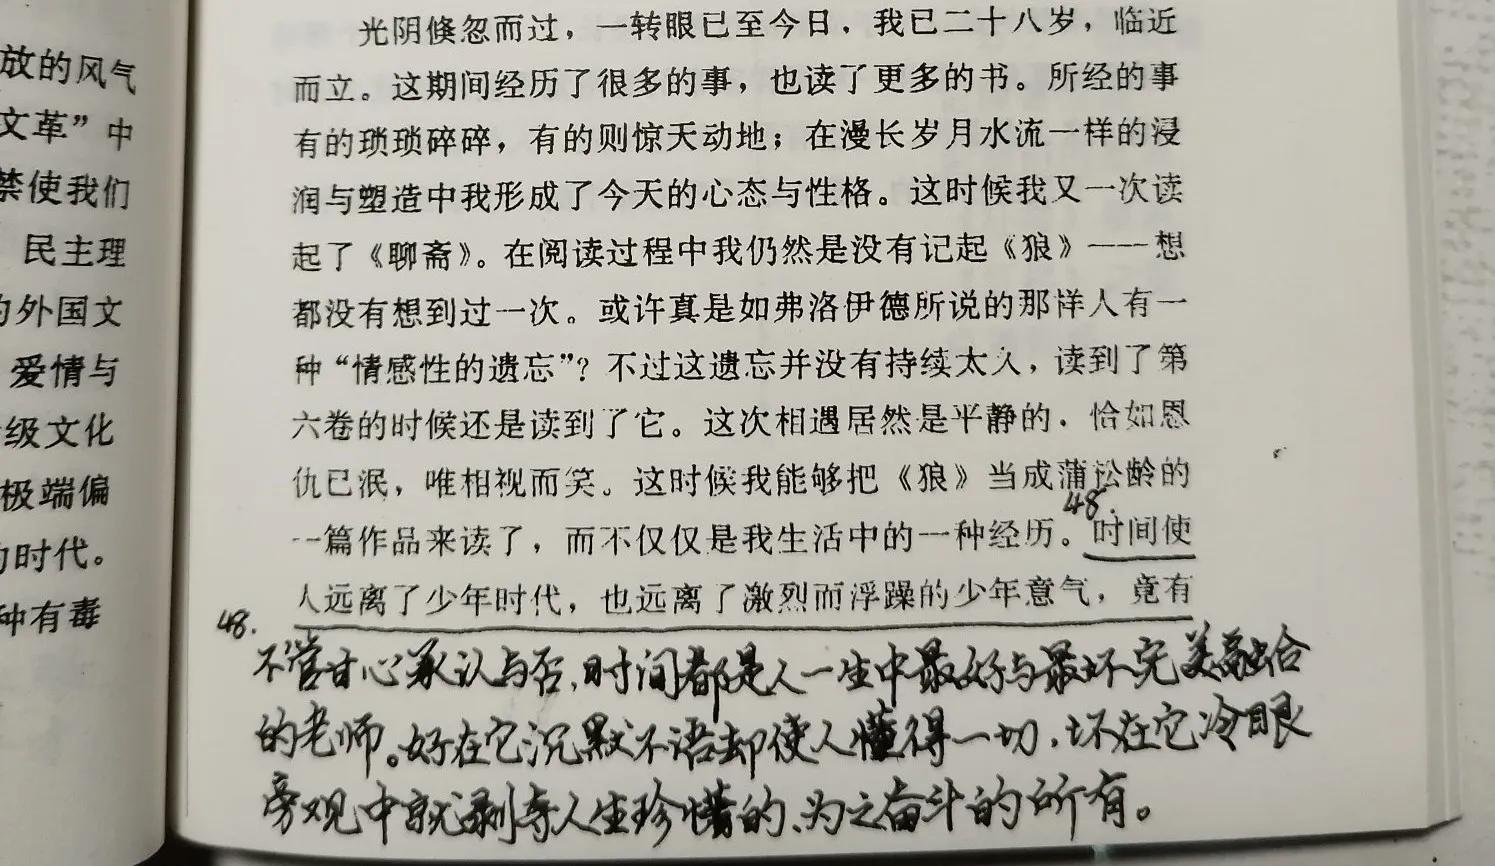 放的风气
文革”中
禁使我们
民主理
的外国文
爱情与
级文化
极端偏
的时代。
种有毒
光阴倏忽而过，一转眼已至今日，我已二十八岁，临近
而立。这期间经历了很多的事，也读了更多的书。所经的事
有的琐琐碎碎，有的则惊天动地；在漫长岁月水流一样的浸
润与塑造中我形成了今天的心态与性格。这时候我又一次读
起了《聊斋》。在阅读过程中我仍然是没有记起《狼》——想
都没有想到过一次。或许真是如弗洛伊德所说的那样人有一
种“情感性的遗忘”？不过这遗忘并没有持续太久，读到了第
六卷的时候还是读到了它。这次相遇居然是平静的，恰如恩
仇已泯，唯相视而笑。这时候我能够把《狼》当成蒲松龄的
一篇作品来读了，而不仅仅是我生活中的一种经历。时间使
48.
人远离了少年时代，也远离了激烈而浮躁的少年意气，竟有
48.
不管甘心承认与否，时间都是人一生中最好与最坏完美融合
的老师。好在它沉默不语却使人懂得一切，坏在它冷眼
旁观中就剥夺人生珍惜的、为之奋斗的所有。